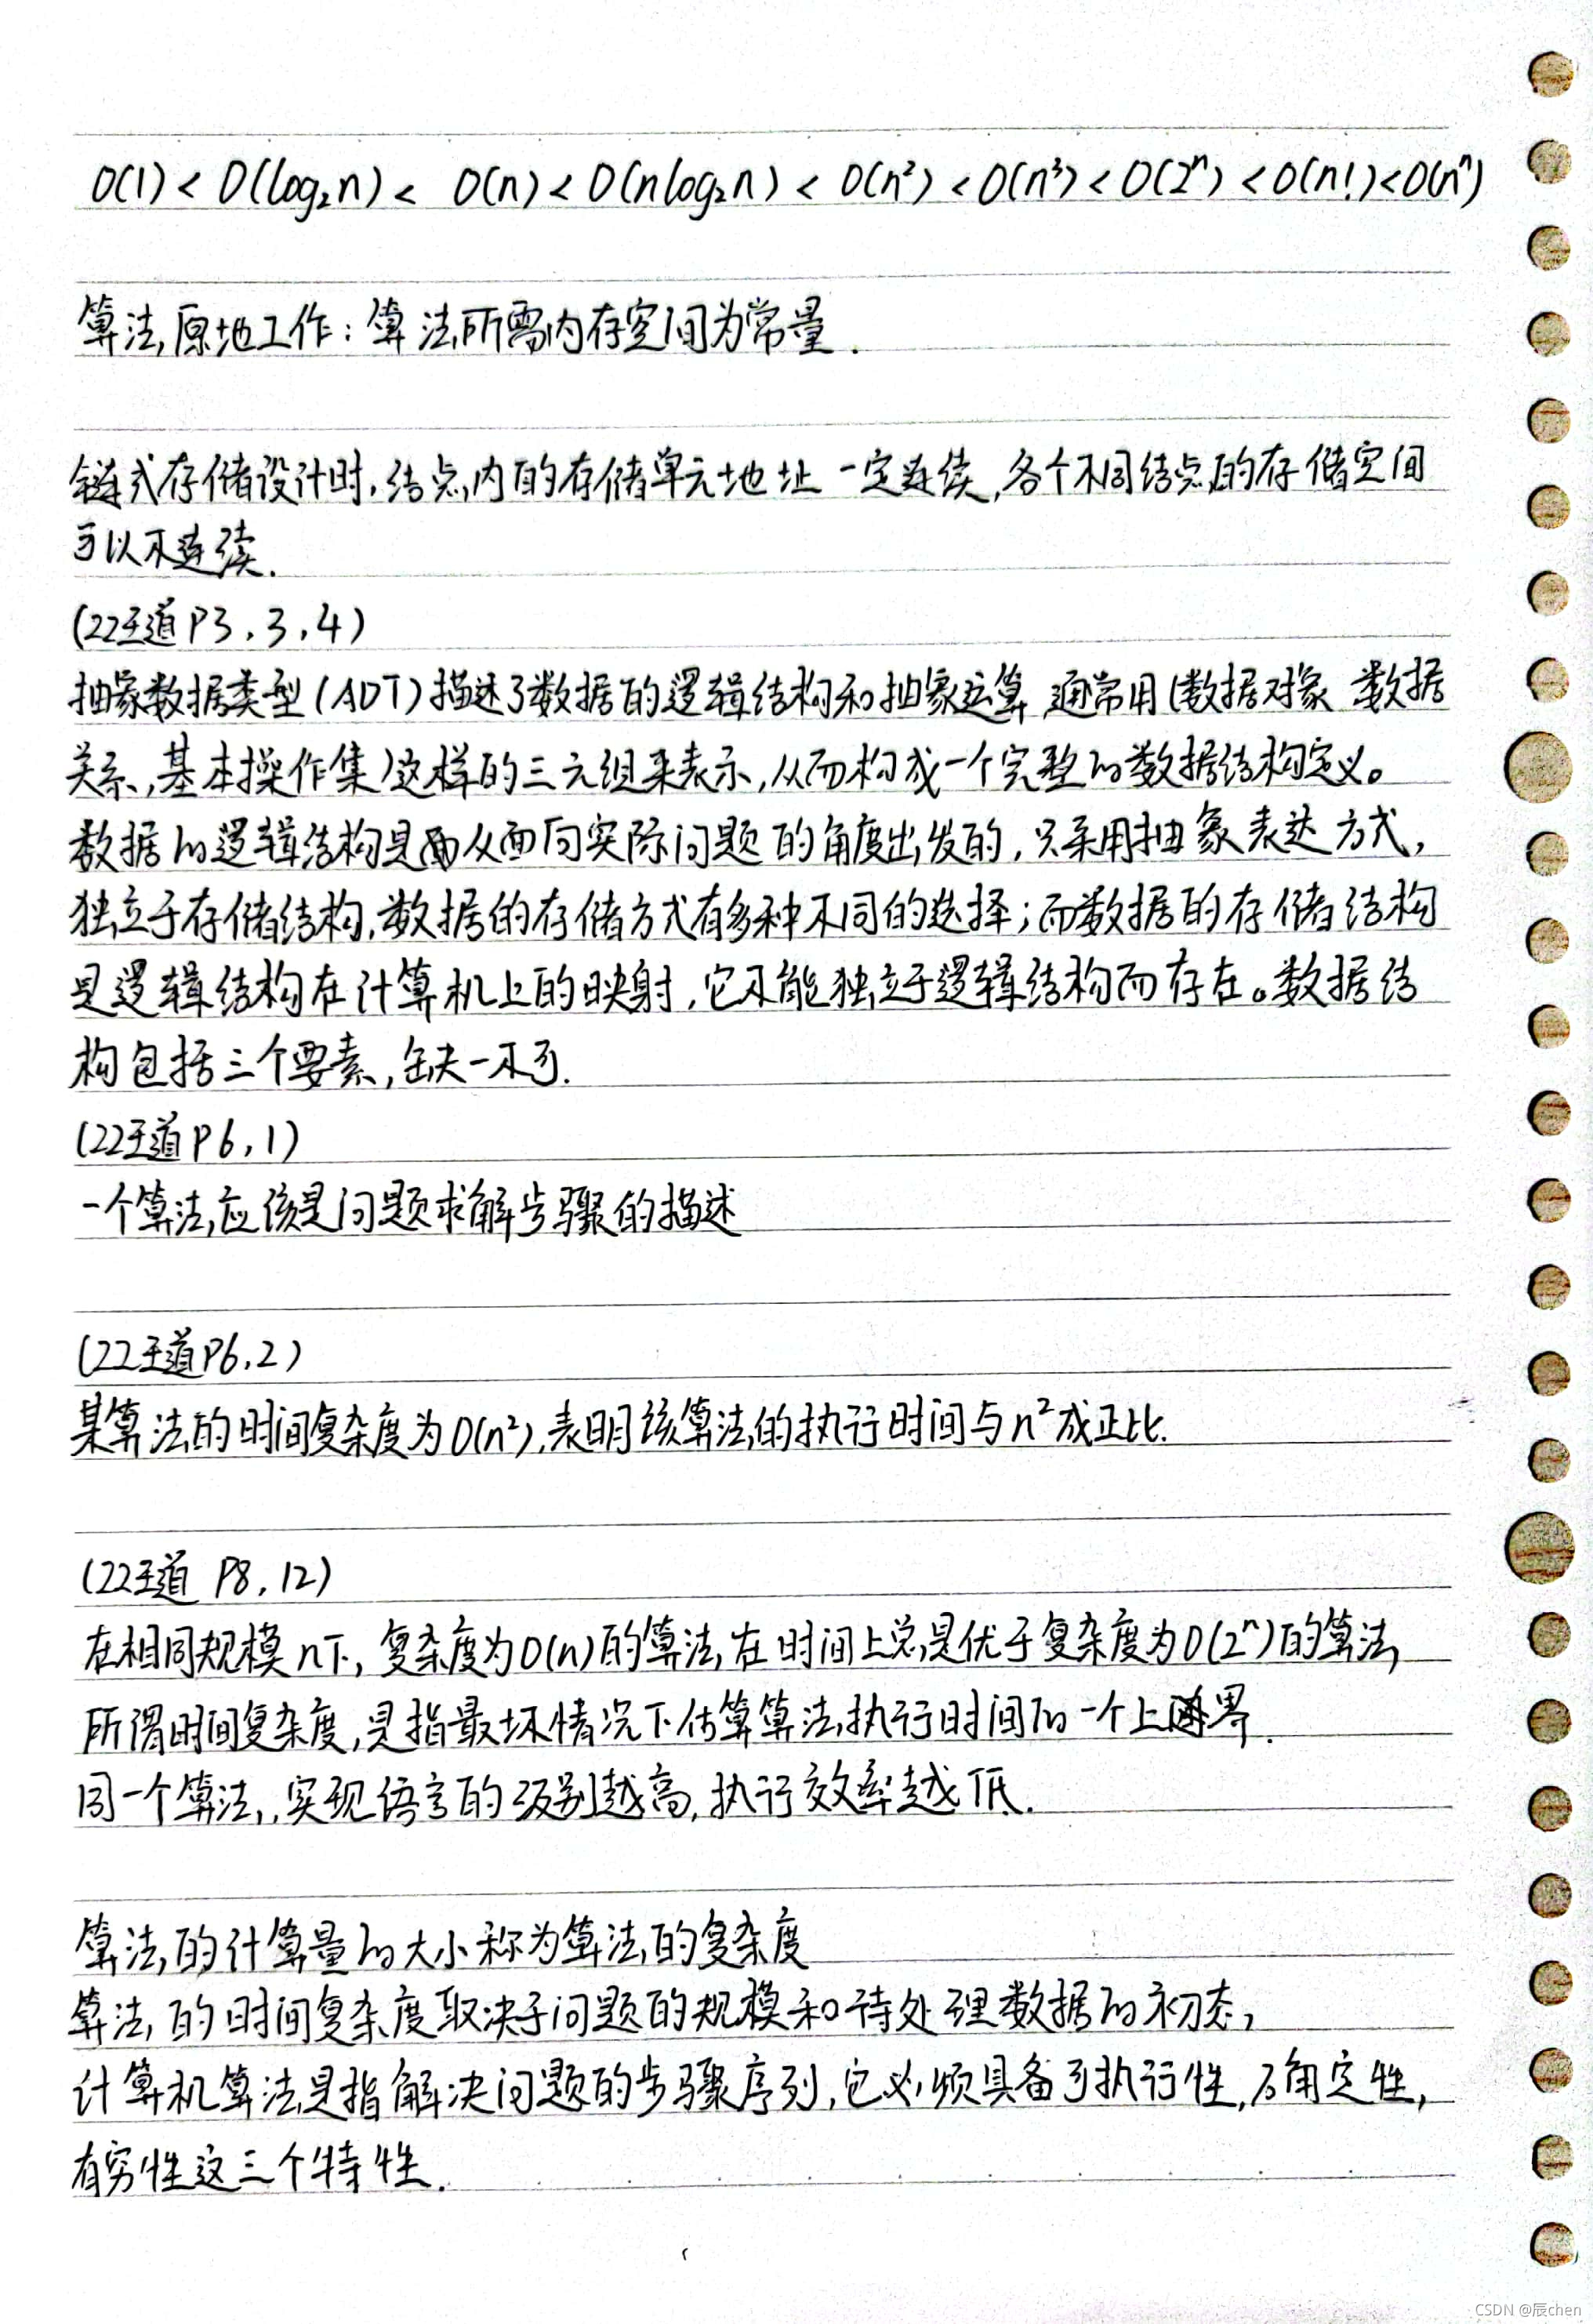 O(1) < O(log₂n) < O(n) < O(nlog₂n) < O(n²) < O(n³) < O(2ⁿ) < O(n!) < O(nⁿ)
算法原地工作：算法所需内存空间为常量.
链式存储设计时,结点内的存储单元地址一定连续,各个不同结点的存储空间
可以不连续.
(22王道P3,3,4)
抽象数据类型(ADT)描述了数据的逻辑结构和抽象运算,通常用(数据对象,数据
关系,基本操作集)这样的三元组来表示,从而构成一个完整的数据结构定义。
数据的逻辑结构是从面向实际问题的角度出发的,只采用抽象表达方式,
独立于存储结构,数据的存储方式有多种不同的选择;而数据的存储结构
是逻辑结构在计算机上的映射,它不能独立于逻辑结构而存在。数据结
构包括三个要素,缺一不可.
(22王道P6,1)
一个算法应该是问题求解步骤的描述
(22王道P6,2)
某算法的时间复杂度为O(n²),表明该算法的执行时间与n²成正比.
(22王道 P8,12)
在相同规模n下,复杂度为O(n)的算法在时间上总是优于复杂度为O(2ⁿ)的算法
所谓时间复杂度,是指最坏情况下估算算法执行时间的一个上界.
同一个算法,实现语言的级别越高,执行效率越低.
算法的计算量的大小称为算法的复杂度
算法的时间复杂度取决于问题的规模和待处理数据的初态,
计算机算法是指解决问题的步骤序列,它必须具备可执行性,确定性,
有穷性这三个特性.
CSDN @辰chen